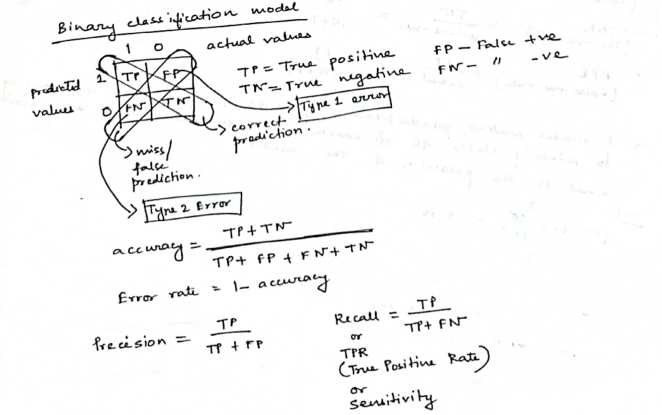 Binary classification model
1 0 actual values
predicted values
1 TP FP
0 FN TN
TP = True positive
TN = True negative
FP - False +ve
FN - " -ve
Type 1 error
correct prediction.
miss/
false
prediction.
Type 2 Error
accuracy = TP + TN / TP + FP + FN + TN
Error rate = 1 - accuracy
Precision = TP / TP + FP
Recall = TP / TP + FN
or
TPR
(True Positive Rate)
or
Sensitivity